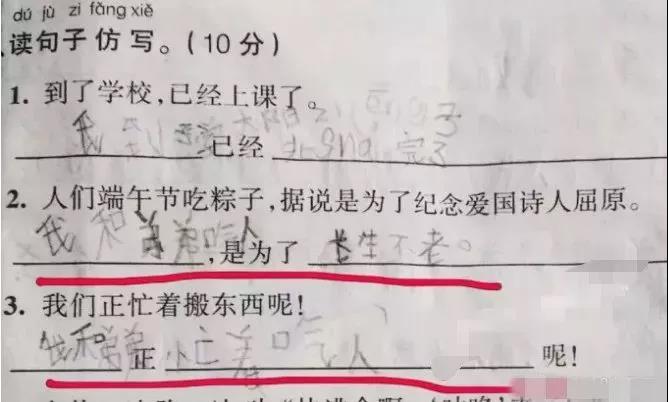 dú jù zi fǎng xiě
读句子仿写。(10分)
1. 到了学校,已经上课了。
我 已经 完了
2. 人们端午节吃粽子,据说是为了纪念爱国诗人屈原。
我和弟弟吃人,是为了长生不老。
3. 我们正忙着搬东西呢!
我和弟弟正忙着吃人呢!